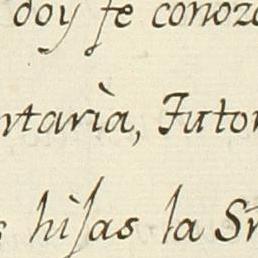 doy fe conozc
ntaria, Tutor
hijas la Sr